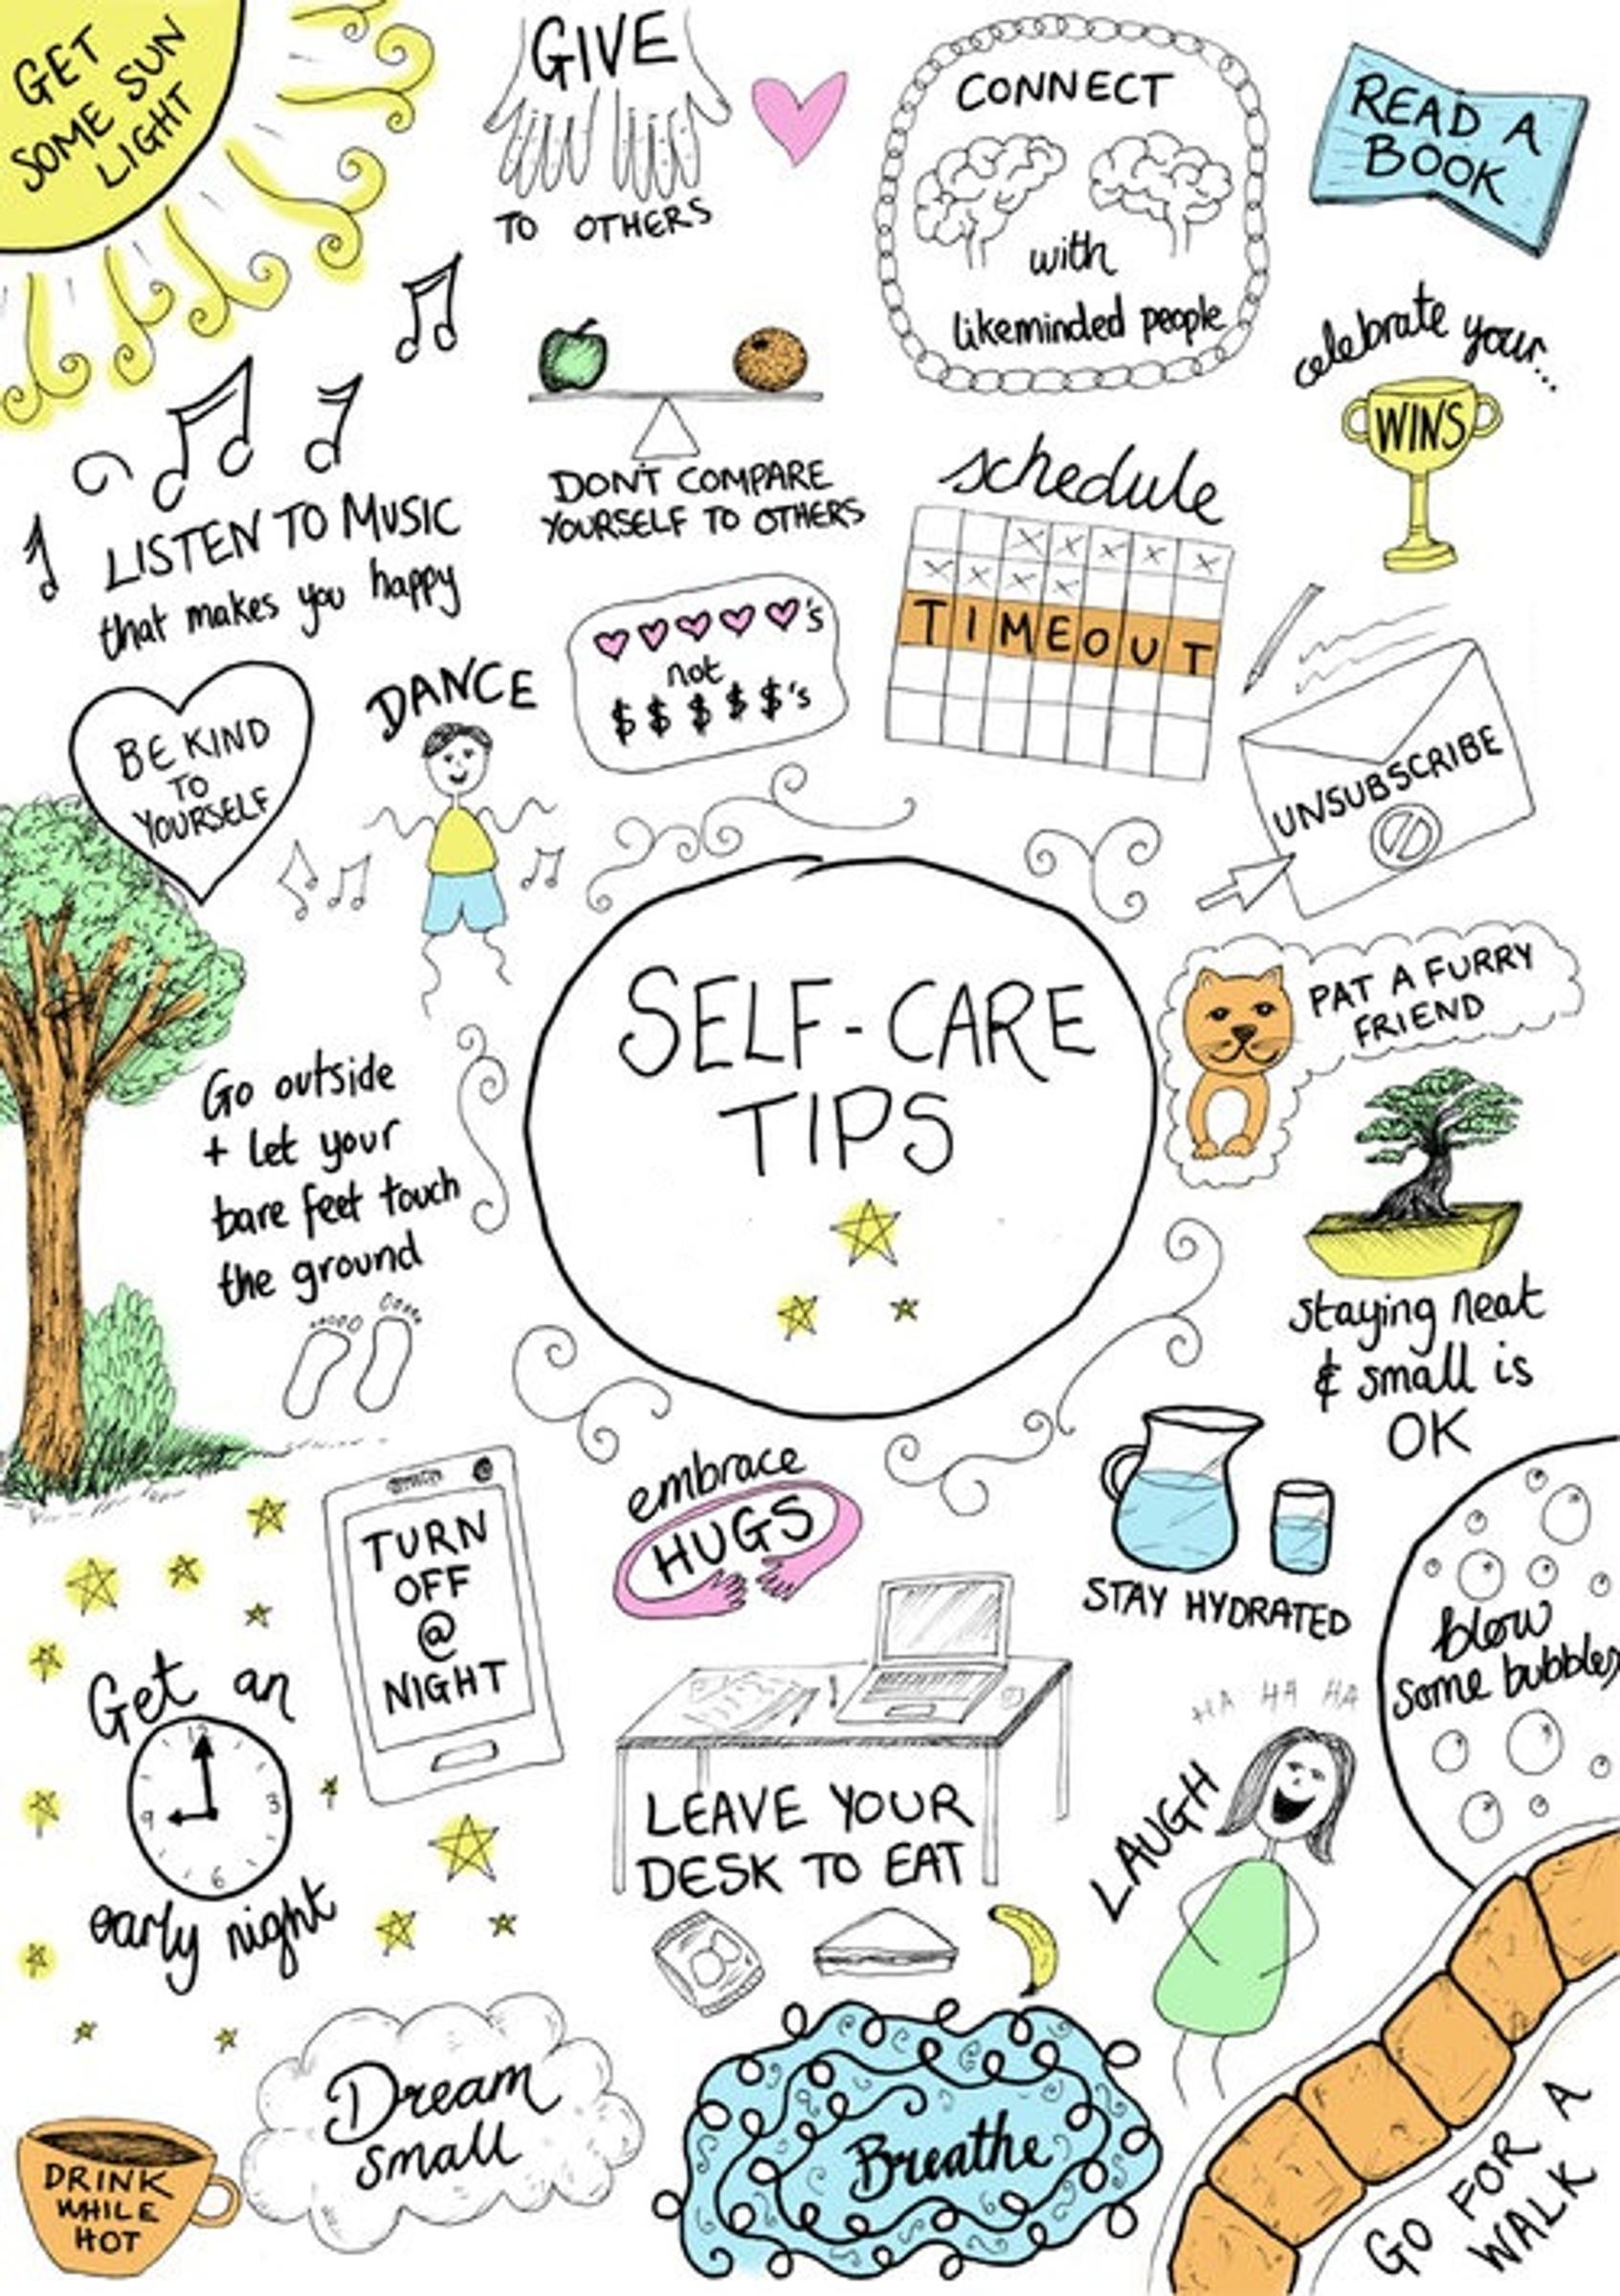 GET
SOME SUN
LIGHT
GIVE
TO OTHERS
CONNECT
with
likeminded people
READ A
BOOK
celebrate your...
WINS
LISTEN TO MUSIC
that makes you happy
DON'T COMPARE
YOURSELF TO OTHERS
schedule
TIMEOUT
's
not
$ $ $ $ $'s
BE KIND
TO
YOURSELF
DANCE
UNSUBSCRIBE
SELF-CARE
TIPS
PAT A FURRY
FRIEND
Go outside
+ let your
bare feet touch
the ground
staying neat
& small is
OK
TURN
OFF
@
NIGHT
embrace
HUGS
STAY HYDRATED
blow
some bubbles
Get an
12
9 3
6
early night
LEAVE YOUR
DESK TO EAT
HA HA HA
LAUGH
Dream
small
Breathe
DRINK
WHILE
HOT
GO FOR A
WALK